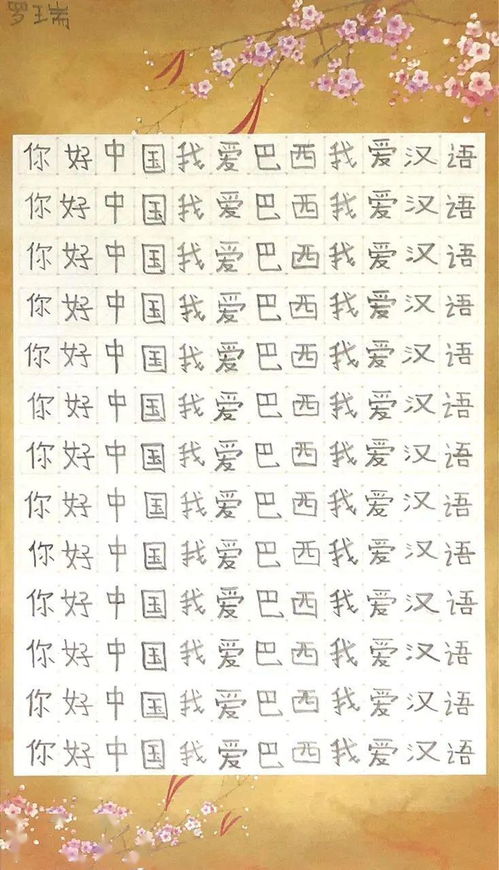 罗瑞
你好中国我爱巴西我爱汉语
你好中国我爱巴西我爱汉语
你好中国我爱巴西我爱汉语
你好中国我爱巴西我爱汉语
你好中国我爱巴西我爱汉语
你好中国我爱巴西我爱汉语
你好中国我爱巴西我爱汉语
你好中国我爱巴西我爱汉语
你好中国我爱巴西我爱汉语
你好中国我爱巴西我爱汉语
你好中国我爱巴西我爱汉语
你好中国我爱巴西我爱汉语
你好中国我爱巴西我爱汉语